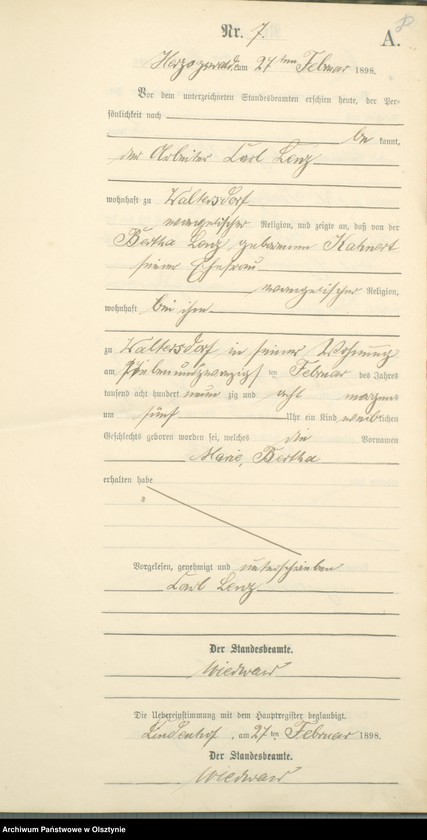 Nr. 7.
A.
am 27ten Februar 1898.
Vor dem unterzeichneten Standesbeamten erschien heute, der Per-
sönlichkeit nach
bekannt,
der Arbeiter Carl Lenz
wohnhaft zu Waltersdorf
evangelischer Religion, und zeigte an, daß von der
Bertha Lenz, geborenen Kahnert
seiner Ehefrau
evangelischer Religion,
wohnhaft bei ihm
zu Waltersdorf in seiner Wohnung
am siebenundzwanzigsten Februar des Jahres
tausend acht hundert neunzig und acht morgens
um fünf Uhr ein Kind weiblichen
Geschlechts geboren worden sei, welches die Vornamen
Marie, Bertha
erhalten habe
Vorgelesen, genehmigt und unterschrieben
Carl Lenz
Der Standesbeamte.
Die Uebereinstimmung mit dem Hauptregister beglaubigt.
Lindenhof, am 27ten Februar 1898.
Der Standesbeamte.
Archiwum Państwowe w Olsztynie